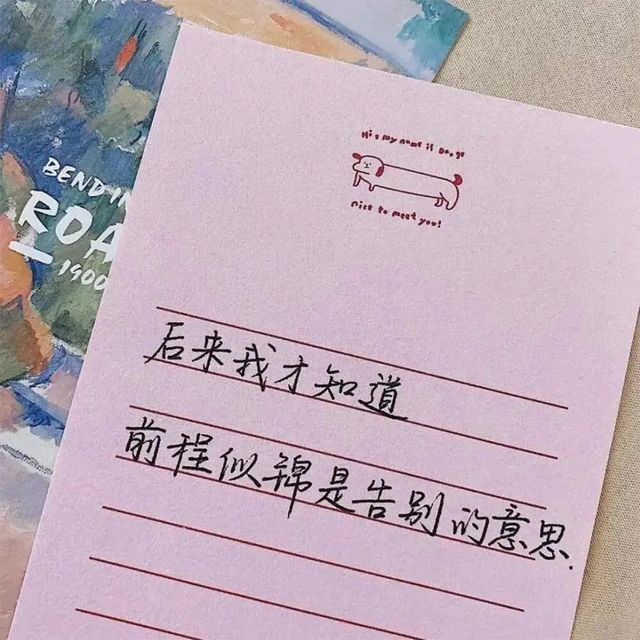 Hi: my name is Dooge
nice to meet you!
BENDIN
ROA
1900
后来我才知道
前程似锦是告别的意思.